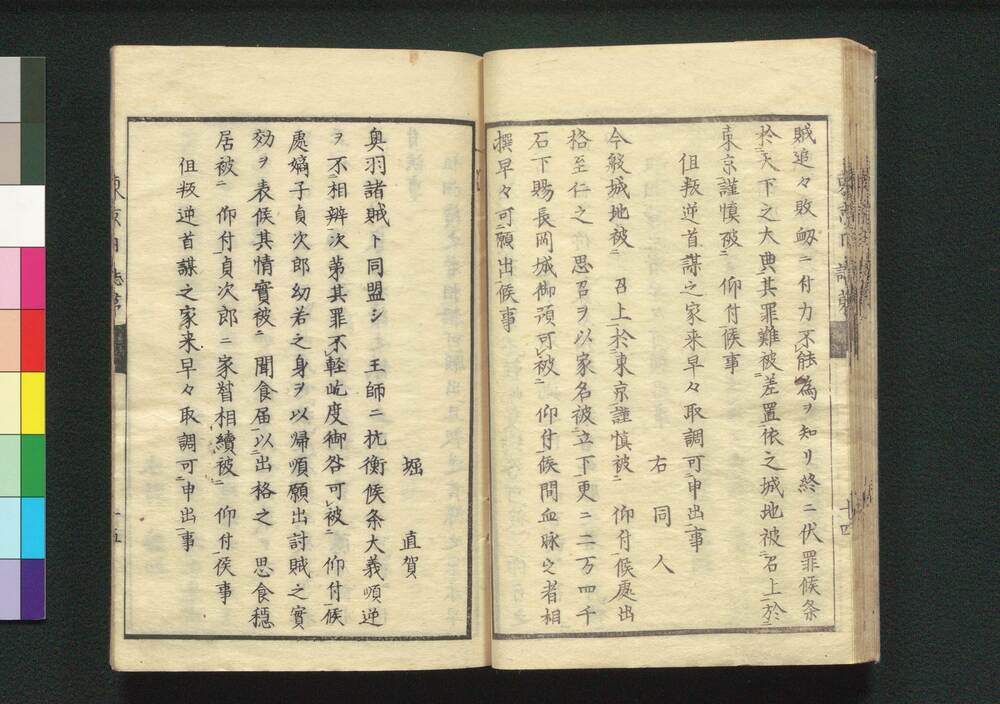 賊追々敗衂ニ付力不能為ヲ知リ終ニ伏罪候条
於天下之大典其罪難被差置依之城地被召上於
東京謹慎被仰付候事
但叛逆首謀之家来早々取調可申出事
右同人
今般城地被召上於東京謹慎被仰付候處出
格至仁之思召ヲ以家名被立下更ニ二万四千
石下賜長岡城御預可被仰付候間血脉之者相
撰早々可願出候事
堀直賀
奥羽諸賊ト同盟シ王師ニ抗衡候条大義順逆
ヲ不相辨次第其罪不軽屹度御咎可被仰付候
處嫡子貞次郎幼若之身ヲ以帰順願出討賊之實
効ヲ表候其情實被聞食届以出格之思食穏
居被仰付貞次郎ニ家督相續被仰付候事
但叛逆首謀之家来早々取調可申出事
十四
十五